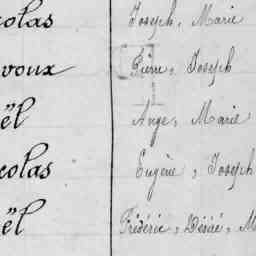 colas Joseph, Marie
voux Pierre, Joseph
ël Ange, Marie
colas Eugène, Joseph
ël Frédéric, Désiré, M